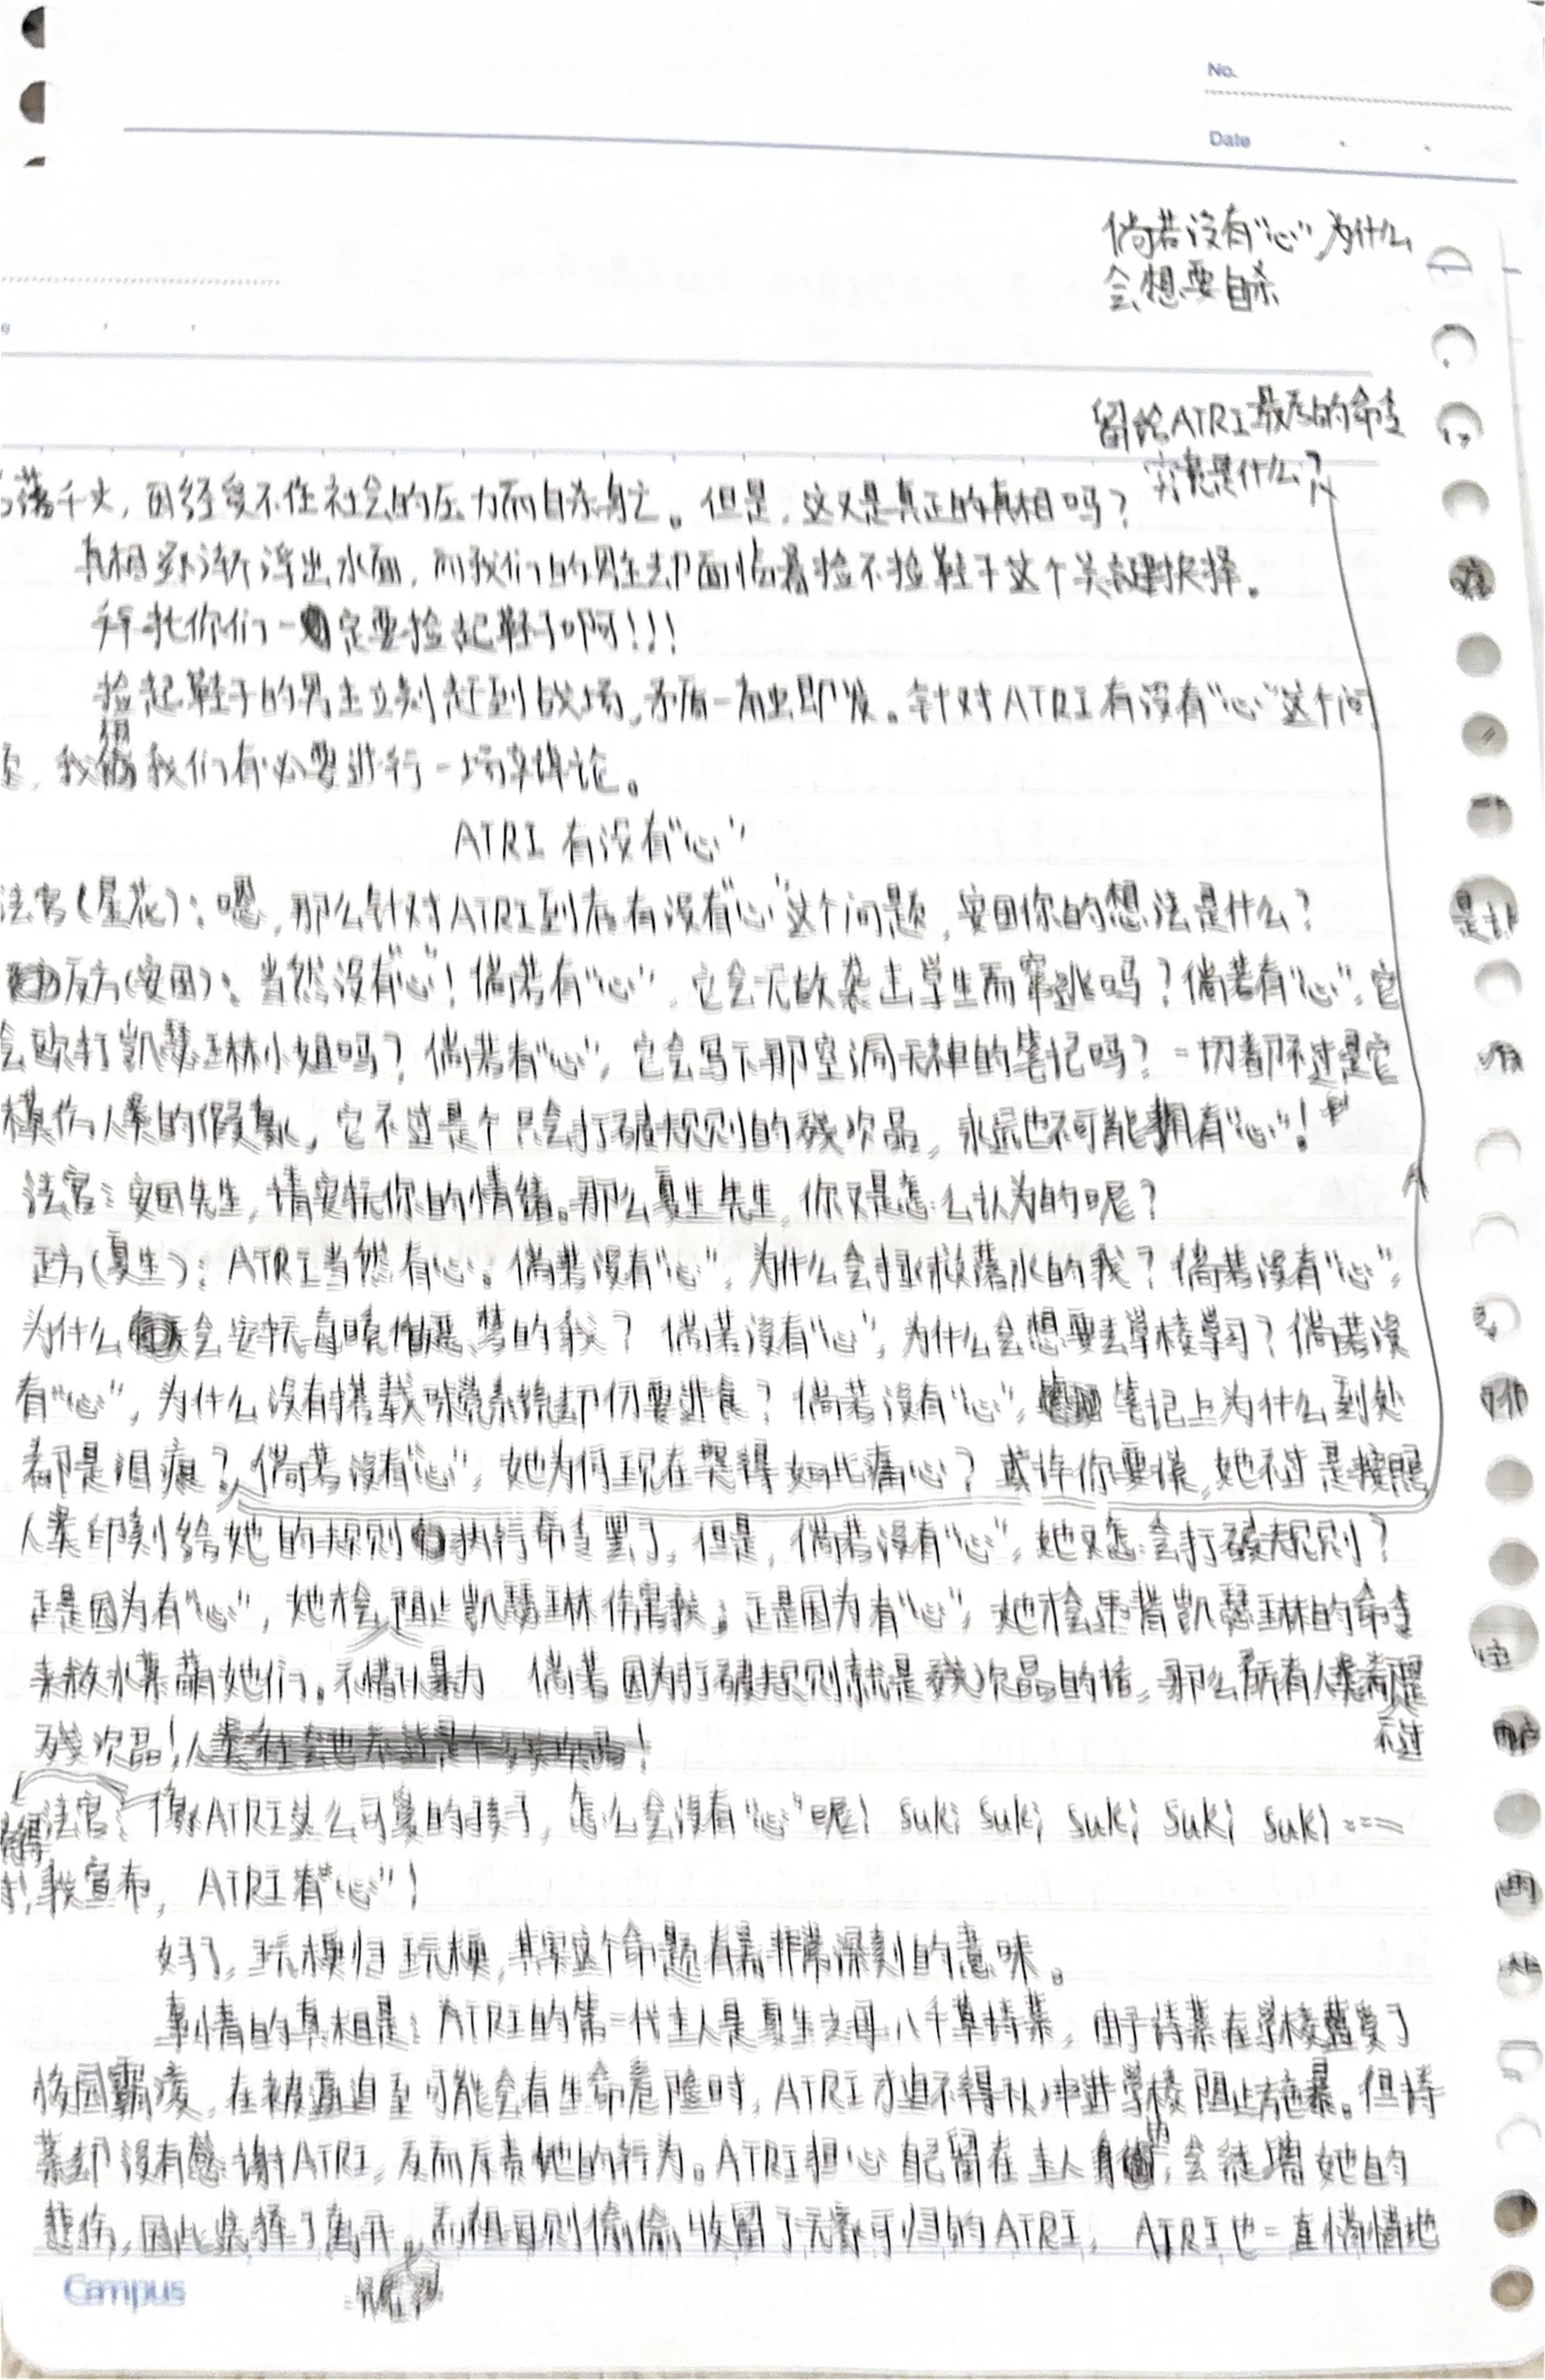 No.
Date
倘若没有“心”,为什么
会想要自杀
留给ATRI最后的命令
究竟是什么?
落千丈,因经受不住社会的压力而自杀身亡。但是,这又是真正的真相吗?
真相逐渐浮出水面,而我们的男主却面临着捡不捡鞋子这个关键抉择。
拜托你们一定要捡起鞋子啊!!!
捡起鞋子的男主立刻赶到战场,矛盾一触即发。针对ATRI有没有“心”这个问
题,我想我们有必要进行一场辩论。
ATRI 有没有“心”
法官(星花):嗯,那么针对ATRI到底有没有“心”这个问题,安田你的想法是什么?
反方(安田):当然没有“心”!倘若有“心”,它会无故袭击学生而窜逃吗?倘若有“心”,它
会欧打凯瑟琳小姐吗?倘若有“心”,它会写下那空洞无神的笔记吗?一切都不过是它
模仿人类的假象,它不过是个只会打破规则的残次品,永远也不可能拥有“心”!
法官:安田先生,请安抚你的情绪。那么夏生先生,你又是怎么认为的呢?
正方(夏生):ATRI当然有心。倘若没有“心”,为什么会拯救落水的我?倘若没有“心”,
为什么会安抚每晚做恶梦的我?倘若没有“心”,为什么会想要去学校学习?倘若没
有“心”,为什么没有搭载味觉系统却仍要进食?倘若没有“心”,笔记上为什么到处
都是泪痕?倘若没有“心”,她为何现在哭得如此痛心?或许你要说,她不过是按照
人类印刻给她的规则执行命令罢了,但是,倘若没有“心”,她又怎会打破规则?
正是因为有“心”,她才会阻止凯瑟琳伤害我;正是因为有“心”,她才会违背凯瑟琳的命令
来救水菜萌她们。不惜以暴力 倘若因为打破规则就是残次品的话,那么所有人类都是
不过
残次品!
法官:像ATRI这么可爱的孩子,怎么会没有“心”呢!suki suki suki suki suki~~~
我宣布,ATRI有“心”!
好了,玩梗归玩梗,其实这个命题有着非常深刻的意味。
事情的真相是:ATRI的第一代主人是夏生之母八千草诗菜,由于诗菜在学校遭受了
校园霸凌,在被逼迫至可能会有生命危险时,ATRI才迫不得以冲进学校阻止施暴。但诗
菜却没有感谢ATRI,反而斥责她的行为。ATRI担心自己留在主人身边,会徒增她的
悲伤,因此选择了离开。而祖母则偷偷收留了无家可归的ATRI,ATRI也一直悄悄地
Campus